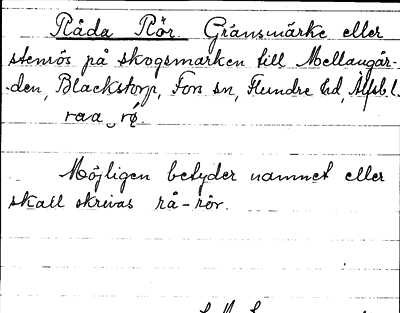 Råda Rör. Gränsmärke eller
stenrös på skogsmarken till Mellangår-
-den, Blackstorp, Fors sn, Flundre hd, Älfsb. l.
raa rö.
Möjligen betyder namnet eller
skall skrivas rå-rör.